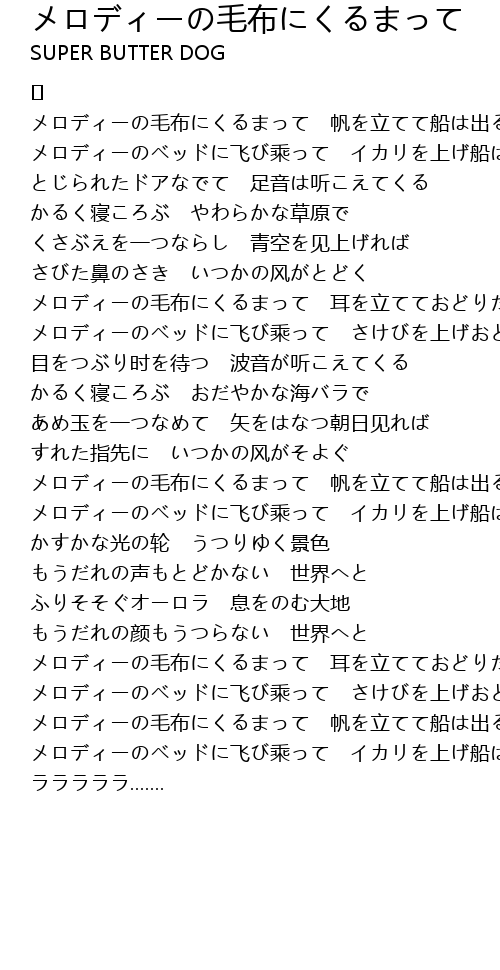 メロディーの毛布にくるまって
SUPER BUTTER DOG
[]
メロディーの毛布にくるまって　帆を立てて船は出る
メロディーのベッドに飞び乗って　イカリを上げ船は
とじられたドアなでて　足音は听こえてくる
かるく寝ころぶ　やわらかな草原で
くさぶえを一つならし　青空を见上げれば
さびた鼻のさき　いつかの风がとどく
メロディーの毛布にくるまって　耳を立てておどりだ
メロディーのベッドに飞び乗って　さけびを上げおど
目をつぶり时を待つ　波音が听こえてくる
かるく寝ころぶ　おだやかな海バラで
あめ玉を一つなめて　矢をはなつ朝日见れば
すれた指先に　いつかの风がそよぐ
メロディーの毛布にくるまって　帆を立てて船は出る
メロディーのベッドに飞び乗って　イカリを上げ船は
かすかな光の轮　うつりゆく景色
もうだれの声もとどかない　世界へと
ふりそそぐオーロラ　息をのむ大地
もうだれの颜もうつらない　世界へと
メロディーの毛布にくるまって　耳を立てておどりだ
メロディーのベッドに飞び乗って　さけびを上げおど
メロディーの毛布にくるまって　帆を立てて船は出る
メロディーのベッドに飞び乗って　イカリを上げ船は
ラララララ.......